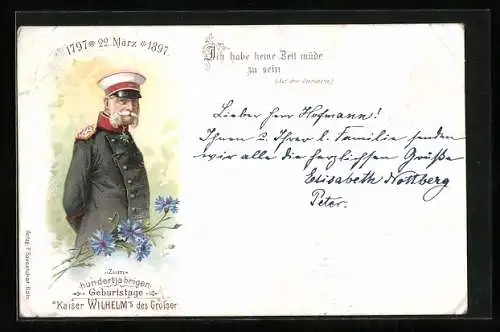 1797 * 22 März * 1897.
Ich habe keine Zeit müde
zu sein
Lieber Herr Hofmann!
Ihnen u. Ihrer l. Familie senden
wir alle die herzlichsten Grüße
Elisabeth Nottberg
Peter.
Zum
hundertjährigen
Geburtstage
Kaiser WILHELM'S des Großen